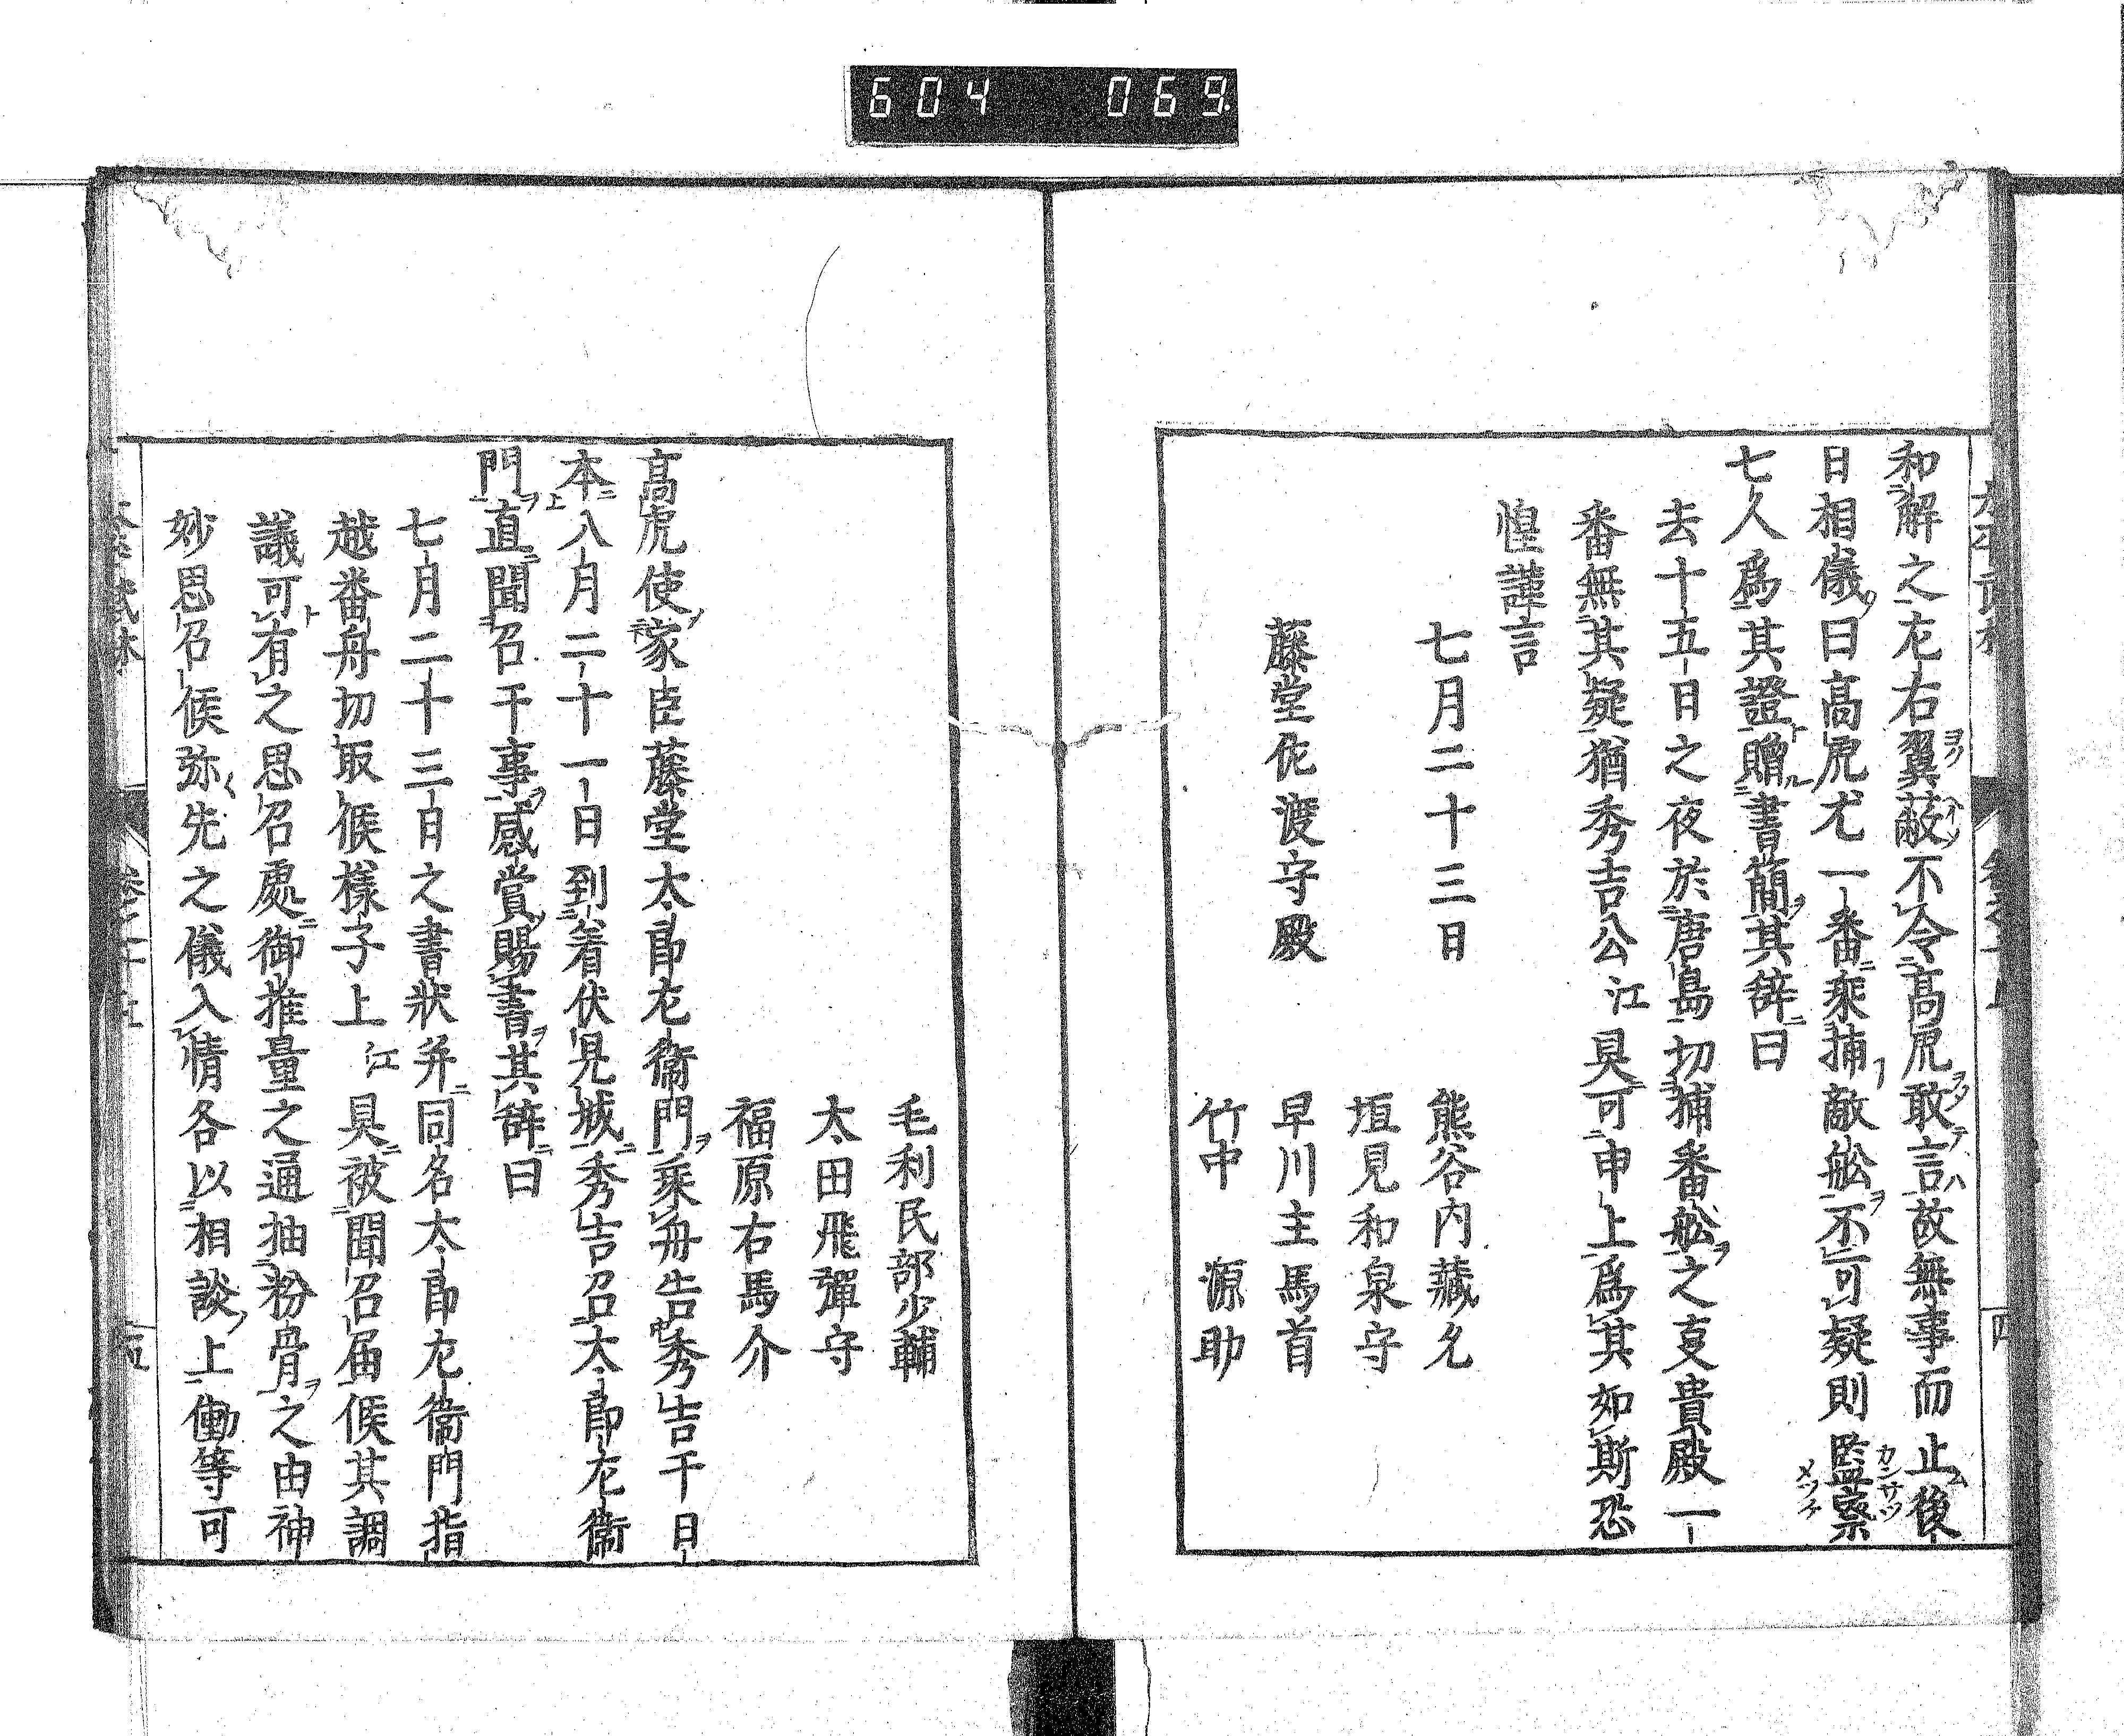 604 069
和解之左右翼蔽不令高虎敢言故無事而止後
日相儀曰高虎尤一番乘捕敵舩不可疑則監察
七人爲其證贈書簡其辞曰
去十五日之夜於唐島切捕番舩之支貴殿一
番無其疑猶秀吉公江具可申上爲其如斯恐
惶謹言
七月二十三日
熊谷内藏允
垣見和泉守
藤堂佐渡守殿
早川主馬首
竹中源助
毛利民部少輔
太田飛彈守
福原右馬介
高虎使家臣藤堂太郎左衞門乘舟告秀吉干日
本八月二十一日到着伏見城秀吉召太郎左衞
門直聞召干事感賞賜書其辞曰
七月二十三日之書狀并同名太郎左衞門指
越番舟切取候樣子上江具被聞召届候其調
議可有之思召處御推量之通抽粉骨之由神
妙思召候弥先之儀入情各以相談上働等可